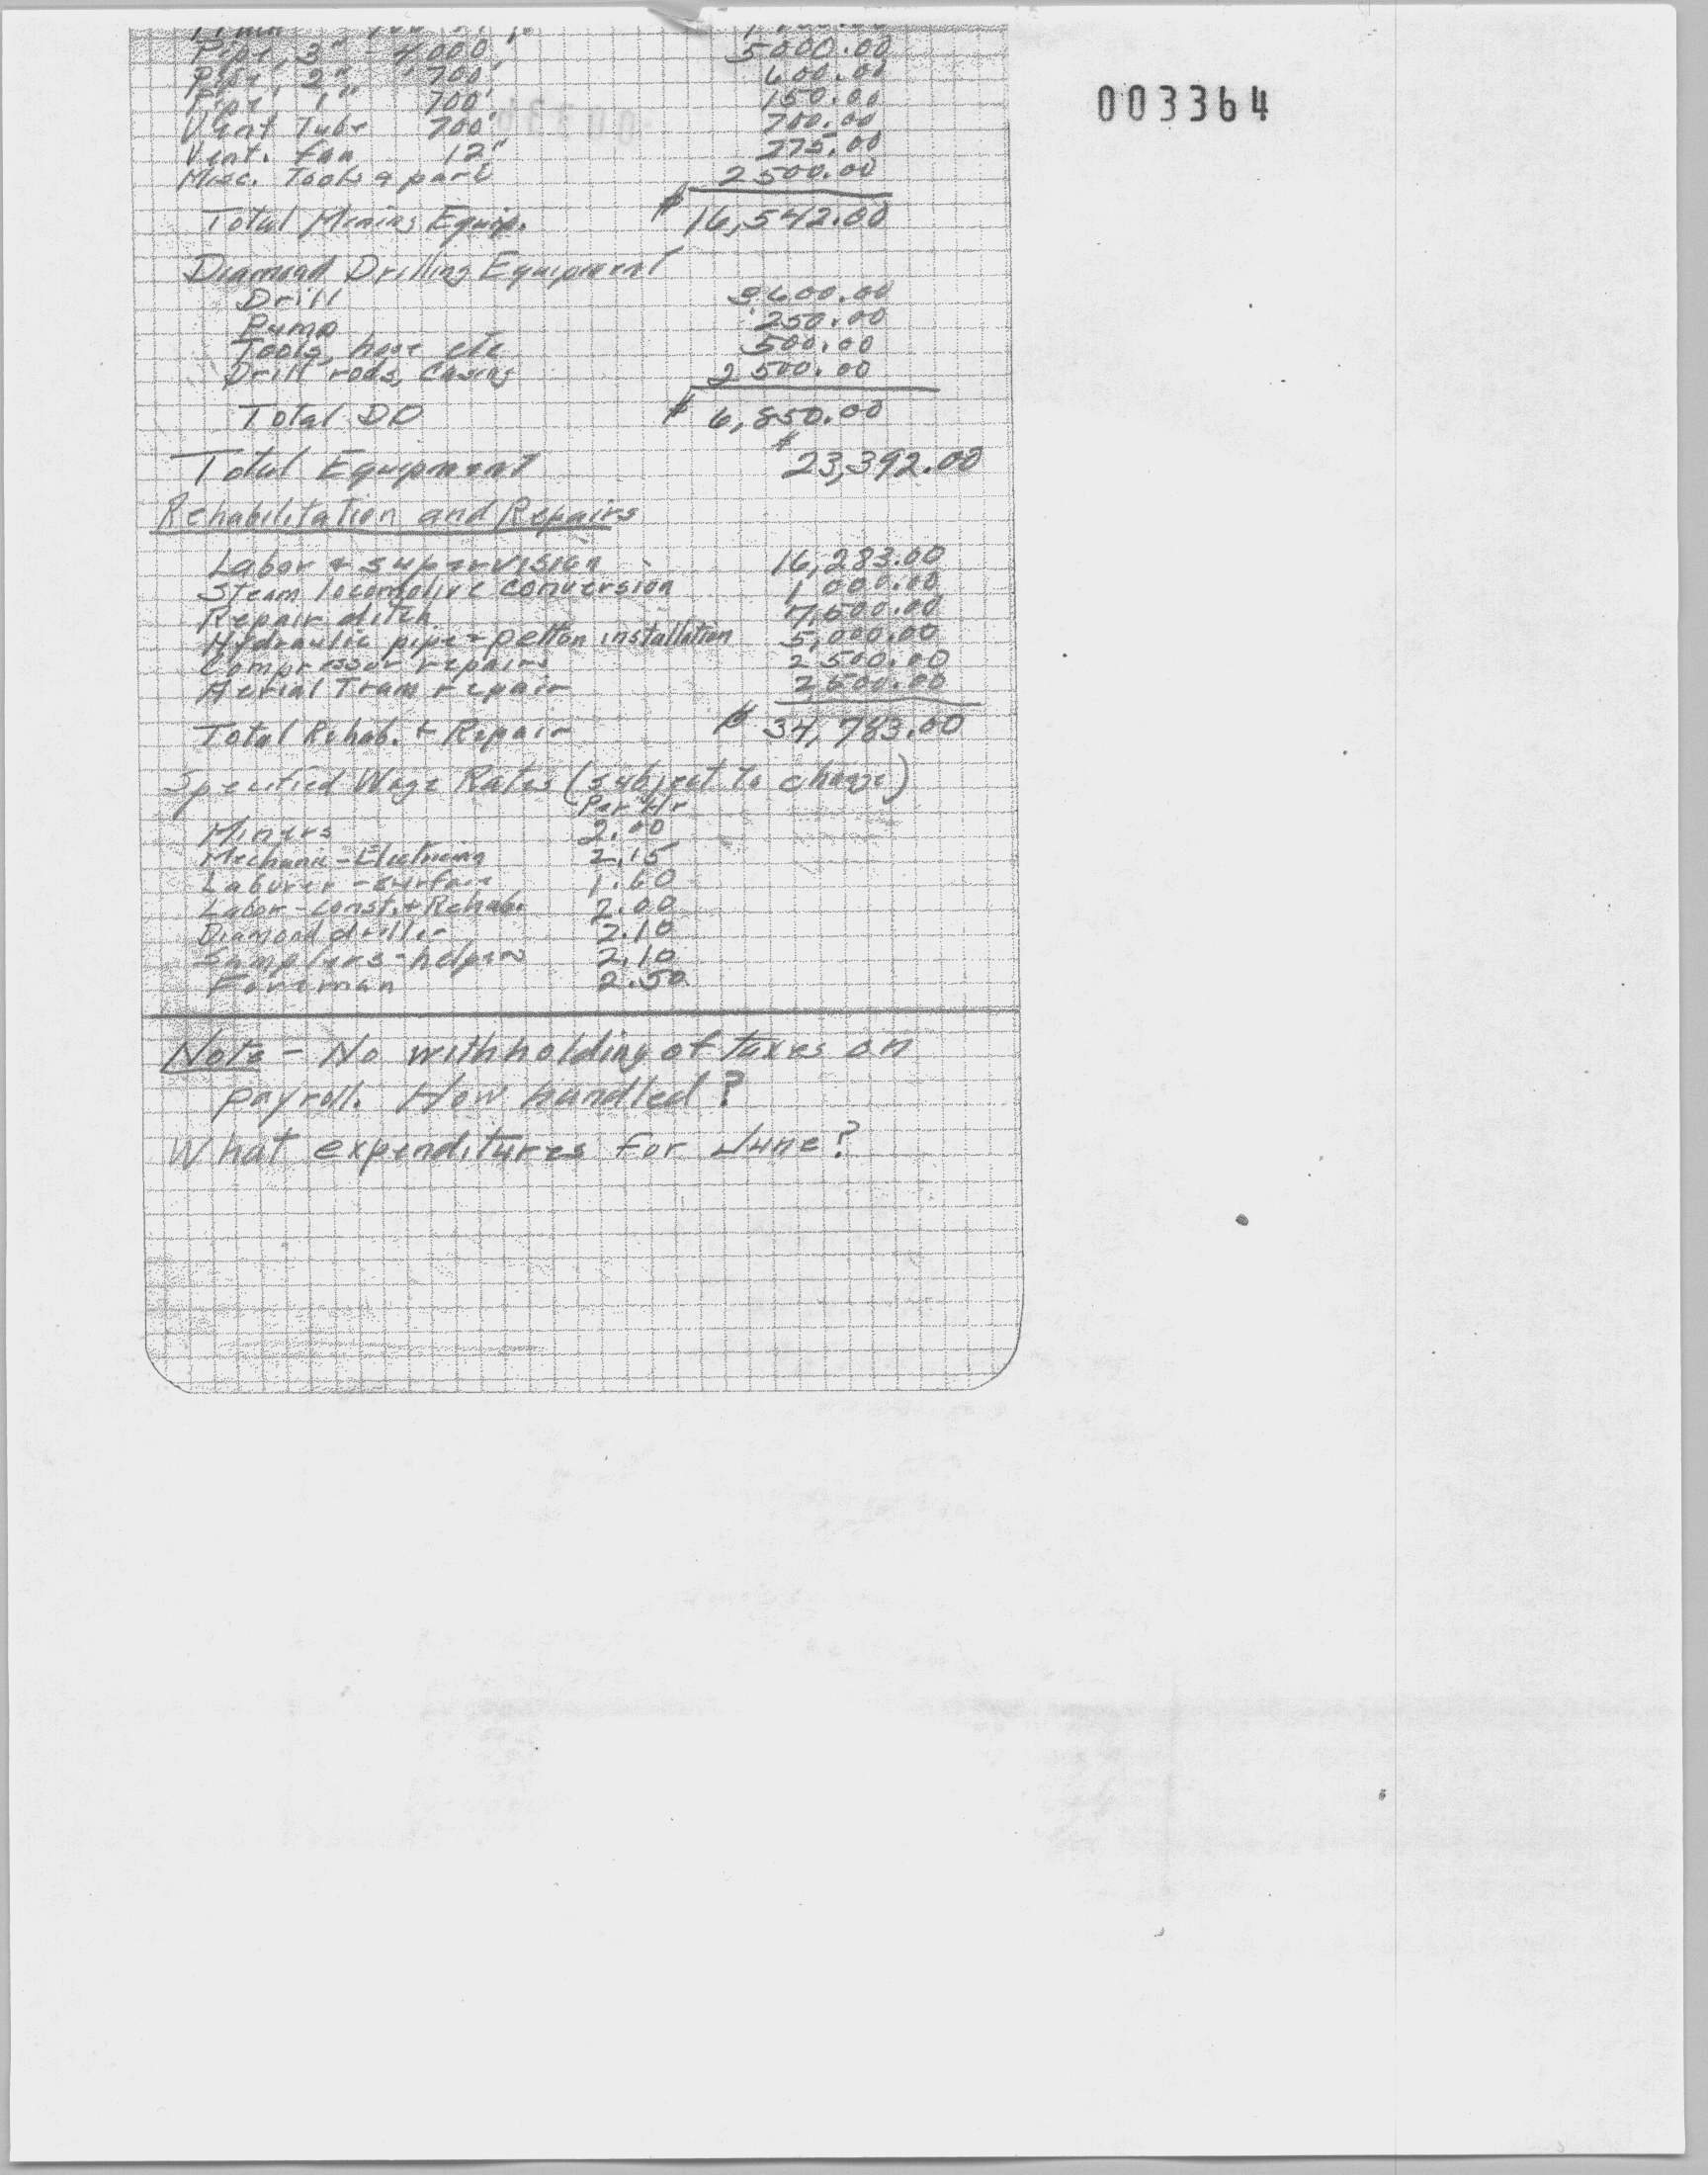 003364
Pipe, 3" - 4,000' 5000.00
Pipe, 2" 700' 600.00
Pipe, 1" 700' 150.00
Vent Tube 700' 700.00
Vent. fan 12" 275.00
Misc. Tools & part 2500.00
Total Mining Equip. $ 16,542.00
Diamond Drilling Equipment
Drill 3600.00
Pump 250.00
Tools, hose etc 500.00
Drill rods, casing 2500.00
Total DD $ 6,850.00
Total Equipment $ 23,392.00
Rehabilitation and Repairs
Labor & supervision 16,283.00
Steam locomotive conversion 1,000.00
Repair ditch 7,500.00
Hydraulic pipe & pelton installation 5,000.00
Compressor repairs 2500.00
Aerial Tram repair 2,500.00
Total Rehab. & Repair $ 34,783.00
Specified Wage Rates (subject to change)
Per Hr
Miners 2.00
Mechanic - Electricing 2.15
Laborer - surface 1.60
Labor - const. & Rehab. 2.00
Diamond driller 2.10
Samplers - helpers 2.10
Foreman 2.50
Note - No withholding of taxes on
payroll. How handled?
What expenditures for June?